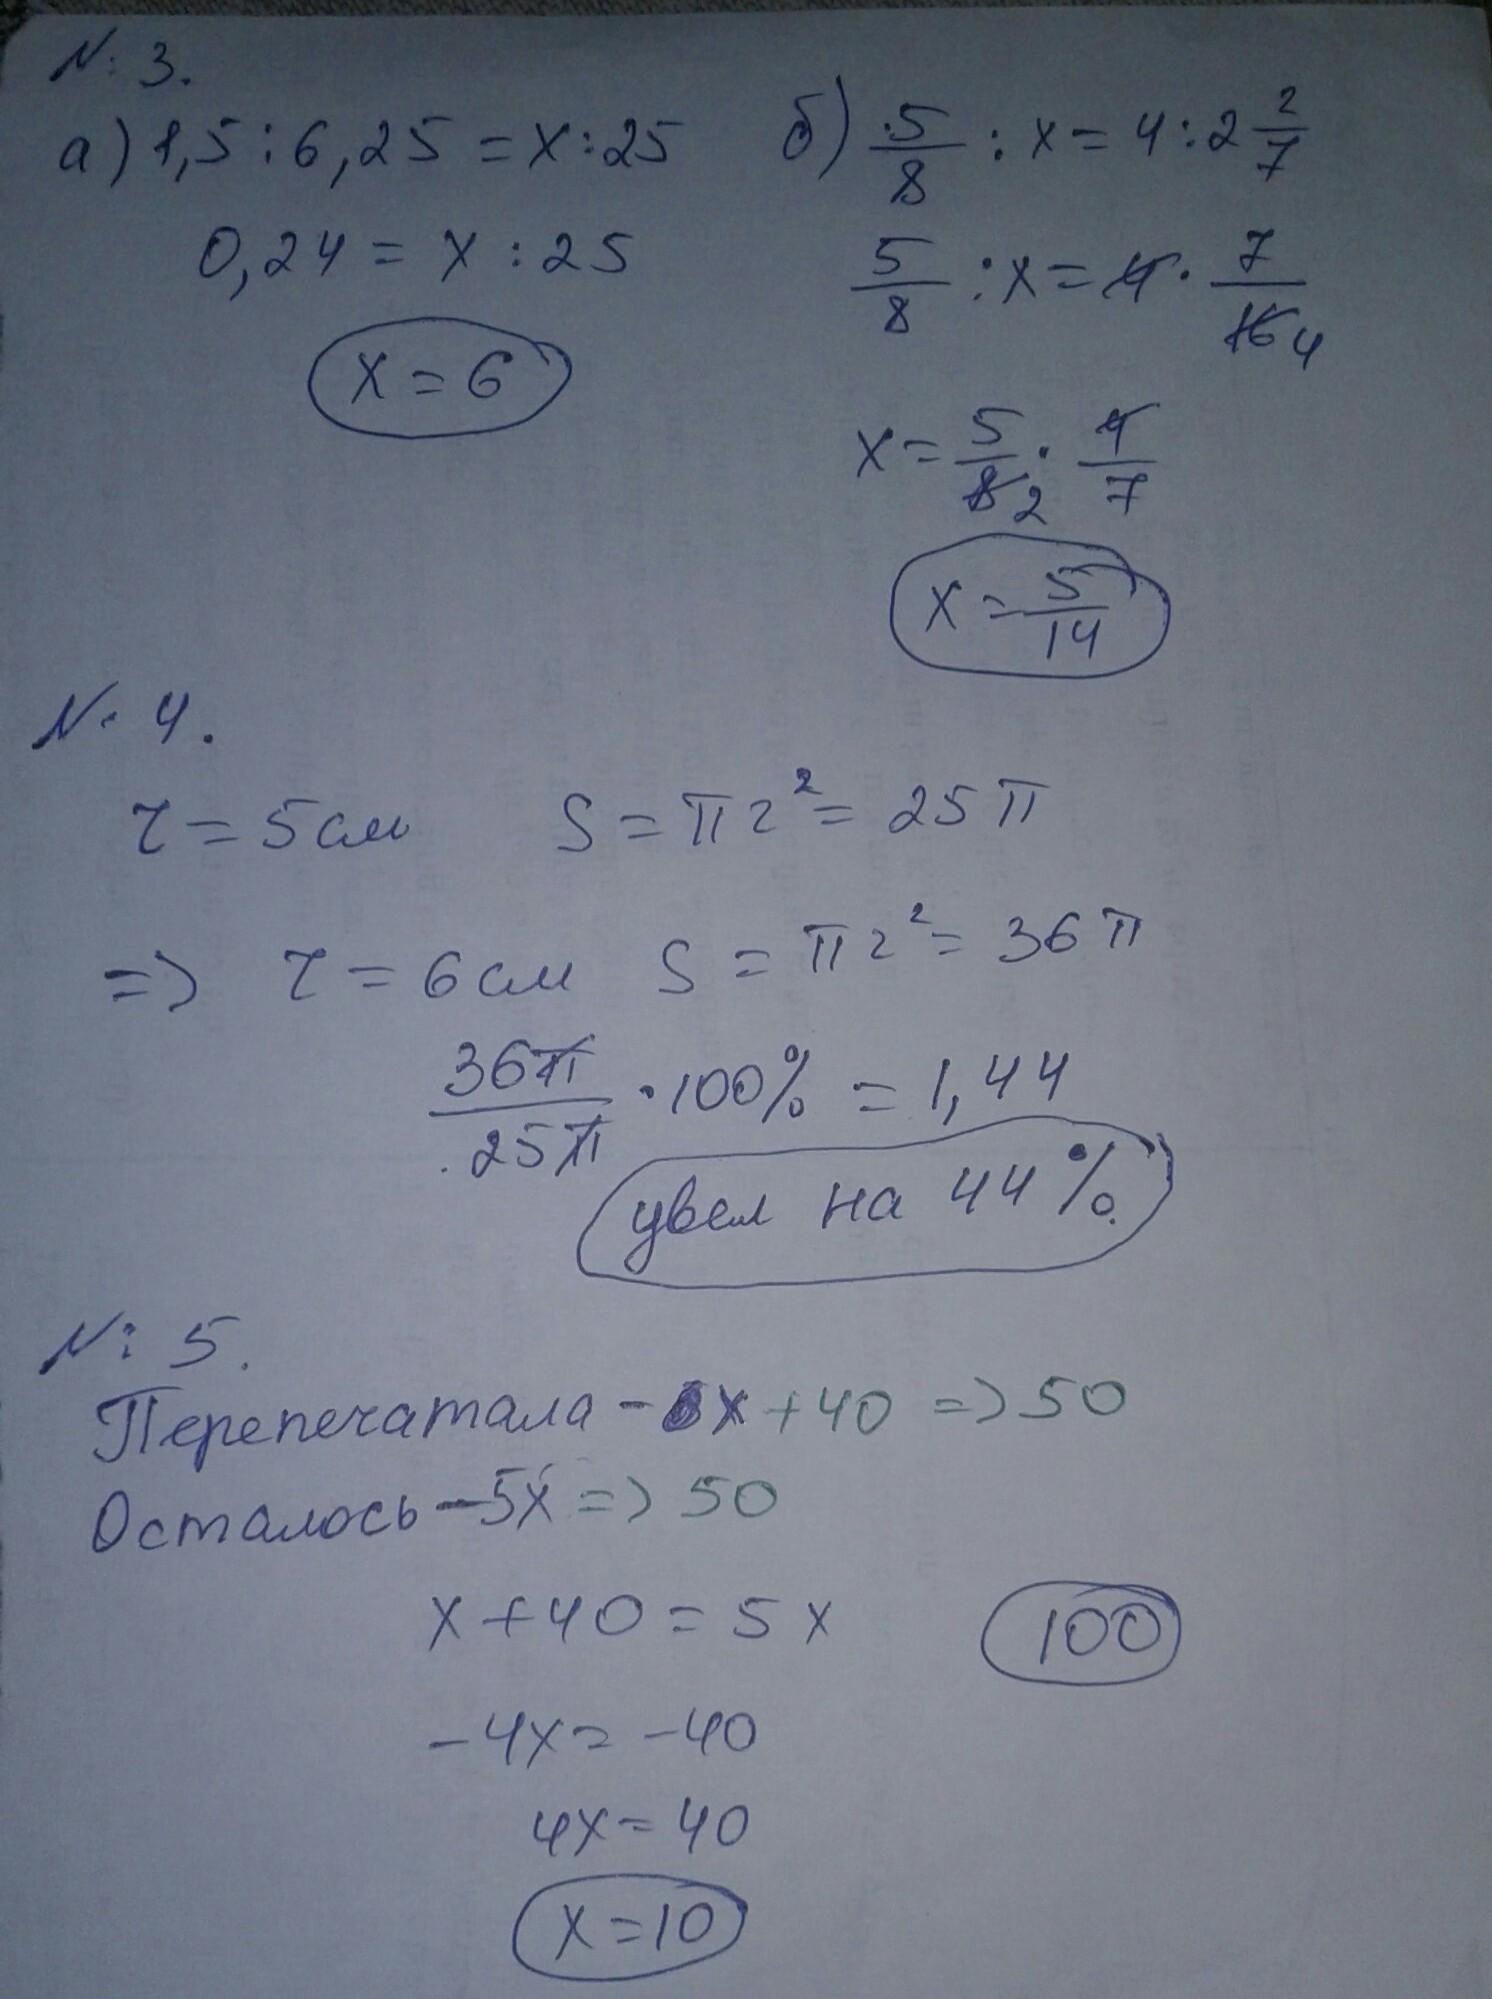 N: 3.
а) 1,5 : 6,25 = x : 25
0,24 = x : 25
x = 6
б) 5/8 : x = 4 : 2 2/7
5/8 : x = 4 · 7/16 4
x = 5/8 2 · 4/7
x = 5/14
N. 4.
r = 5 см S = πr² = 25π
=> r = 6 см S = πr² = 36π
36π/25π · 100% = 1,44
увел на 44%.
N: 5.
Перепечатала - x + 40 => 50
Осталось - 5x => 50
x + 40 = 5x 100
-4x = -40
4x = 40
x = 10